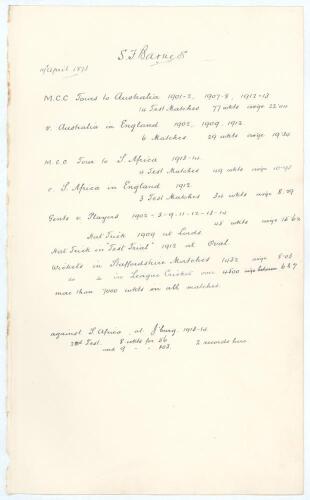 S. F. Barnes
19 April 1873
M.C.C Tours to Australia 1901-2, 1907-8, 1912-13
14 Test Matches 77 wkts avge 22.00
v. Australia in England 1902, 1909, 1912
6 Matches 29 wkts avge 19.30
M.C.C Tour to S. Africa 1913-14
4 Test Matches 49 wkts avge 10.93
v. S. Africa in England 1912
3 Test Matches 34 wkts avge 8.29
Gents v. Players 1902-3-9-11-12-13-14
45 wkts avge 15.62
Hat Trick 1909 at Lords
Hat Trick in "Test Trial" 1912 at Oval
Wickets in Staffordshire Matches 1432 avge 8.03
do in League Cricket over 4000 avge between 6 & 7
more than 7000 wkts in all matches.
against S. Africa at J'burg. 1913-14
2nd Test. 8 wkts for 56
and 9 " " 103. 2 records here